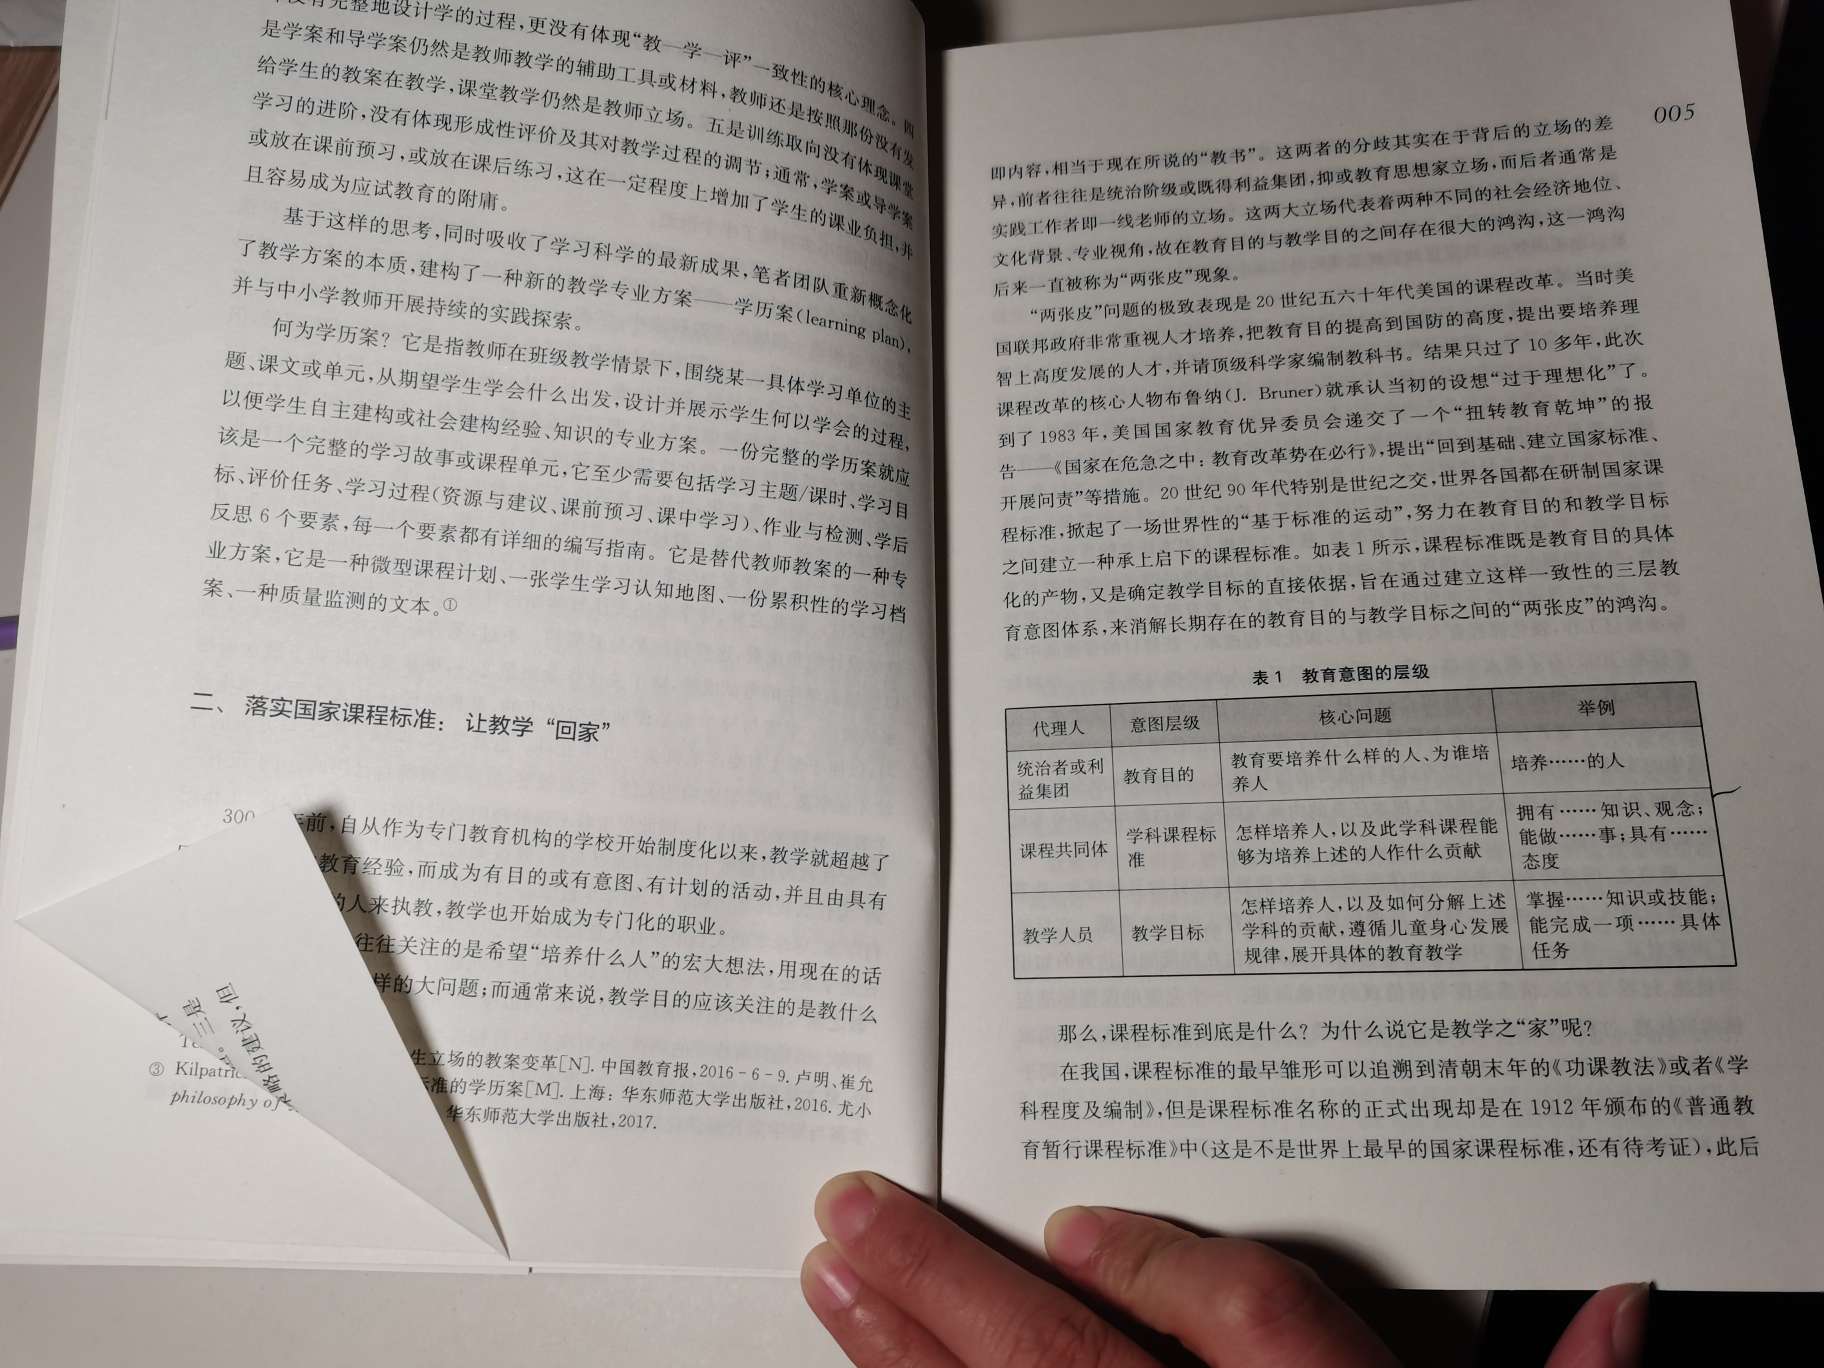 有完整地设计学的过程,更没有体现“教—学—评”一致性的核心理念。四
是学案和导学案仍然是教师教学的辅助工具或材料,教师还是按照那份没有发
给学生的教案在教学,课堂教学仍然是教师立场。五是训练取向没有体现课堂
学习的进阶,没有体现形成性评价及其对教学过程的调节;通常,学案或导学案
或放在课前预习,或放在课后练习,这在一定程度上增加了学生的课业负担,并
且容易成为应试教育的附庸。
基于这样的思考,同时吸收了学习科学的最新成果,笔者团队重新概念化
了教学方案的本质,建构了一种新的教学专业方案——学历案(learning plan),
并与中小学教师开展持续的实践探索。
何为学历案?它是指教师在班级教学情景下,围绕某一具体学习单位的主
题、课文或单元,从期望学生学会什么出发,设计并展示学生何以学会的过程,
以便学生自主建构或社会建构经验、知识的专业方案。一份完整的学历案就应
该是一个完整的学习故事或课程单元,它至少需要包括学习主题/课时、学习目
标、评价任务、学习过程(资源与建议、课前预习、课中学习)、作业与检测、学后
反思6个要素,每一个要素都有详细的编写指南。它是替代教师教案的一种专
业方案,它是一种微型课程计划、一张学生学习认知地图、一份累积性的学习档
案、一种质量监测的文本。①
二、落实国家课程标准:让教学“回家”
300 年前,自从作为专门教育机构的学校开始制度化以来,教学就超越了
教育经验,而成为有目的或有意图、有计划的活动,并且由具有
的人来执教,教学也开始成为专门化的职业。
往往关注的是希望“培养什么人”的宏大想法,用现在的话
样的大问题;而通常来说,教学目的应该关注的是教什么
生立场的教案变革[N].中国教育报,2016-6-9.卢明、崔允
标准的学历案[M].上海:华东师范大学出版社,2016.尤小
华东师范大学出版社,2017.
③ Kilpatric
philosophy of
。三是
的建议,但
005
即内容,相当于现在所说的“教书”。这两者的分歧其实在于背后的立场的差
异,前者往往是统治阶级或既得利益集团,抑或教育思想家立场,而后者通常是
实践工作者即一线老师的立场。这两大立场代表着两种不同的社会经济地位、
文化背景、专业视角,故在教育目的与教学目的之间存在很大的鸿沟,这一鸿沟
后来一直被称为“两张皮”现象。
“两张皮”问题的极致表现是20世纪五六十年代美国的课程改革。当时美
国联邦政府非常重视人才培养,把教育目的提高到国防的高度,提出要培养理
智上高度发展的人才,并请顶级科学家编制教科书。结果只过了10多年,此次
课程改革的核心人物布鲁纳(J. Bruner)就承认当初的设想“过于理想化”了。
到了1983年,美国国家教育优异委员会递交了一个“扭转教育乾坤”的报
告——《国家在危急之中:教育改革势在必行》,提出“回到基础、建立国家标准、
开展问责”等措施。20世纪90年代特别是世纪之交,世界各国都在研制国家课
程标准,掀起了一场世界性的“基于标准的运动”,努力在教育目的和教学目标
之间建立一种承上启下的课程标准。如表1所示,课程标准既是教育目的具体
化的产物,又是确定教学目标的直接依据,旨在通过建立这样一致性的三层教
育意图体系,来消解长期存在的教育目的与教学目标之间的“两张皮”的鸿沟。
表1 教育意图的层级
代理人 意图层级 核心问题 举例
统治者或利益集团 教育目的 教育要培养什么样的人、为谁培养人 培养……的人
课程共同体 学科课程标准 怎样培养人,以及此学科课程能够为培养上述的人作什么贡献 拥有……知识、观念;能做……事;具有……态度
教学人员 教学目标 怎样培养人,以及如何分解上述学科的贡献,遵循儿童身心发展规律,展开具体的教育教学 掌握……知识或技能;能完成一项……具体任务
那么,课程标准到底是什么?为什么说它是教学之“家”呢?
在我国,课程标准的最早雏形可以追溯到清朝末年的《功课教法》或者《学
科程度及编制》,但是课程标准名称的正式出现却是在1912年颁布的《普通教
育暂行课程标准》中(这是不是世界上最早的国家课程标准,还有待考证),此后